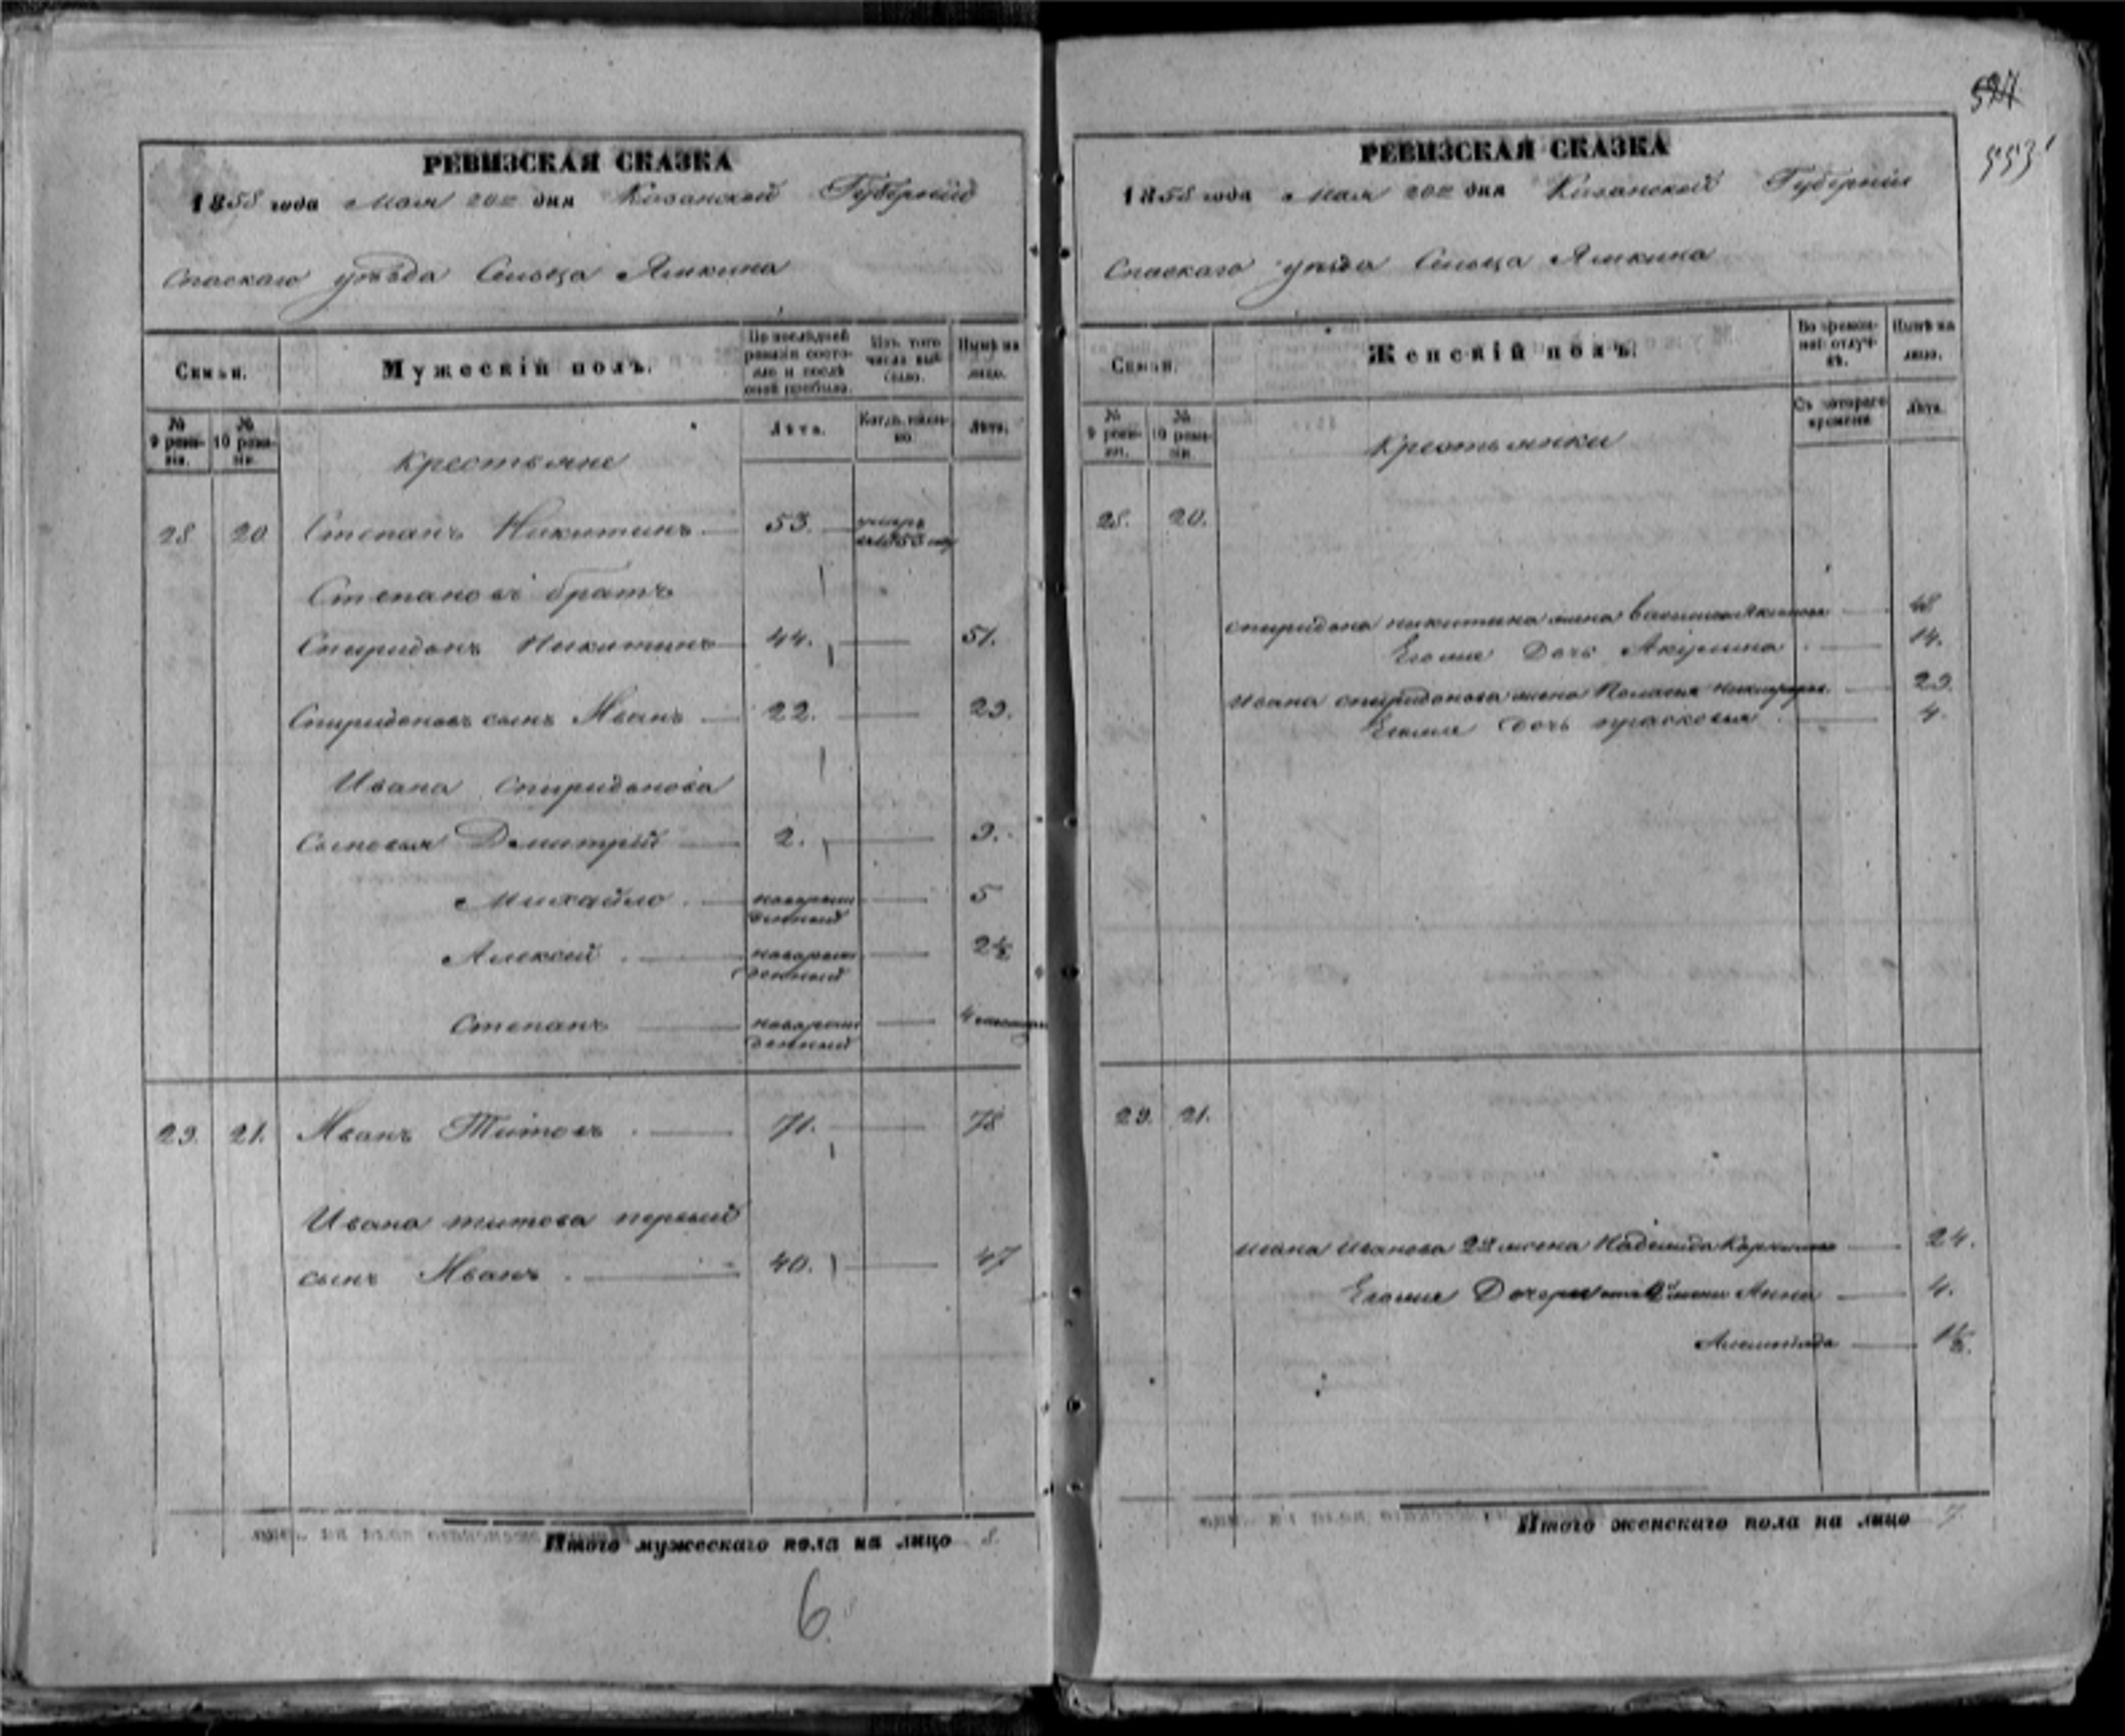 РЕВИЗСКАЯ СКАЗКА
1858 года Мая 20го дня Казанской Губерніи
Спаскаго уѣзда Сельца Ямкина
Семьи.
Мужескій полъ.
По послѣдней ревизіи состояло и послѣ оной прибыло.
Изъ того числа выбыло.
Нынѣ на лицо.
№ 9 ревизіи.
№ 10 ревизіи.
Лѣта.
Когда именно
Лѣта.
Крестьяне
28 20 Степанъ Никитинъ 53. умеръ 1855
Степановъ братъ
Спиридонъ Никитинъ 44. 51.
Спиридоновъ сынъ Иванъ 22. 29.
Ивана Спиридонова
Сыновья Дмитрій 2. 9.
Михайло новорожденный 5
Алексей новорожденный 2½
Степанъ новорожденный 4
29. 21. Иванъ Титовъ 71. 78
Ивана титова первый
сынъ Иванъ 40. 47
Итого мужескаго пола на лицо 8.
6
524
553
РЕВИЗСКАЯ СКАЗКА
1858 года Мая 20го дня Казанской Губерніи
Спаскаго уѣзда Сельца Ямкина
Семьи.
Женскій полъ.
Во временной отлучкѣ.
Нынѣ на лицо.
№ 9 ревизіи.
№ 10 ревизіи.
Съ котораго времени
Лѣта.
Крестьянки
28. 20.
спиридона никитина жена Василиса 48
Его же Дочь Акулина 14.
Ивана спиридонова жена 29.
Его же Дочь прасковья 4.
29. 21.
Ивана Иванова 2я жена Надежда 24.
Его же Дочери от 2й жены Анна 4.
1½.
Итого женскаго пола на лицо 7